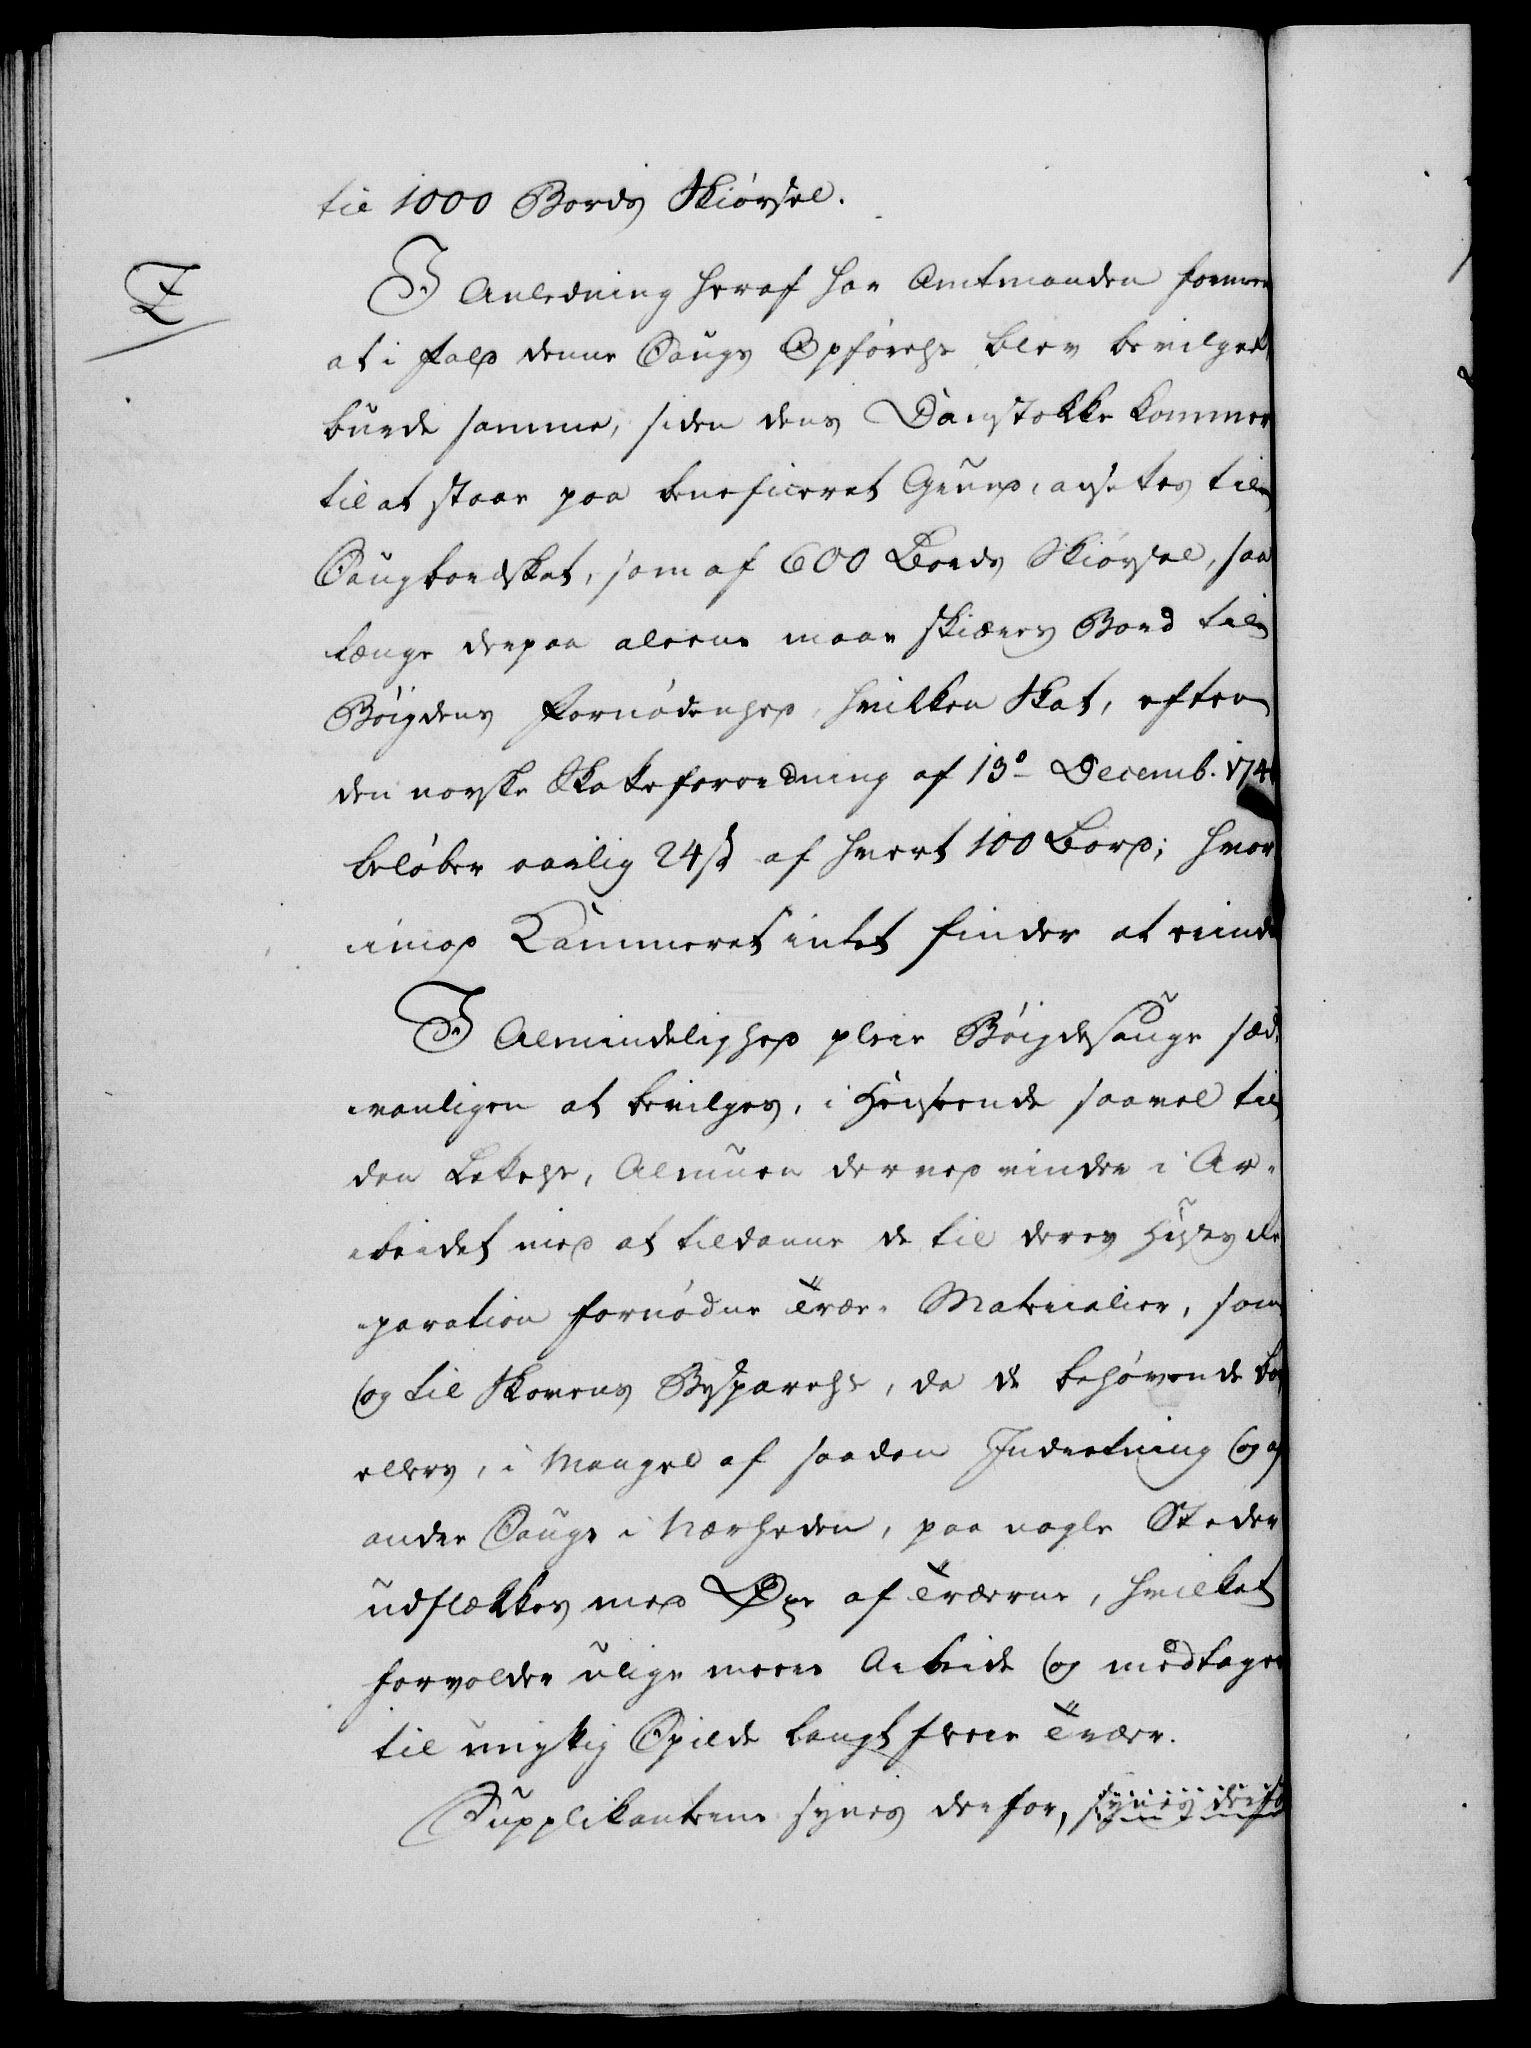 til 1000 Bords Skiørsel.
I Anledning heraf har Amtmanden formeen
at i fald denne Saugs Opførelse blev bevilget,
burde samme, siden dens Damstokke kommer
til at staae paa beneficeret Grund, ansættes til
Saugbordskat, som af 600 Bords Skiørsel, saa
længe derpaa aleene maae skiæres Bord til
Bøigdens Fornødenhed, hvilken Skat, efter
den norske Skatteforordning af 13de Decemb. 174
beløber aarlig 24 s af hvert 100 Bord; hvor
imod Kammeret intet finder at erindre
I Almindelighed pleie Bøigdesauge sæd-
vanligen at bevilges, i Henseende saavel til
den Lettelse, Almuen derved vinder i Ar-
beidet med at tildanne de til deres Huses Re
paration fornødne Træe-Materialier, som
og til Skovens Besparelse, da de behøvende Bord
ellers, i Mangel af saadan Indretning og af
andre Sauge i Nærheden, paa nogle Steder
udflækkes med Øxe af Træerne, hvilket
forvolder ulige meere Arbeide og medtager
til unyttig Spilde langt fleere Træer.
Supplikanterne synes derfor, synes derfo